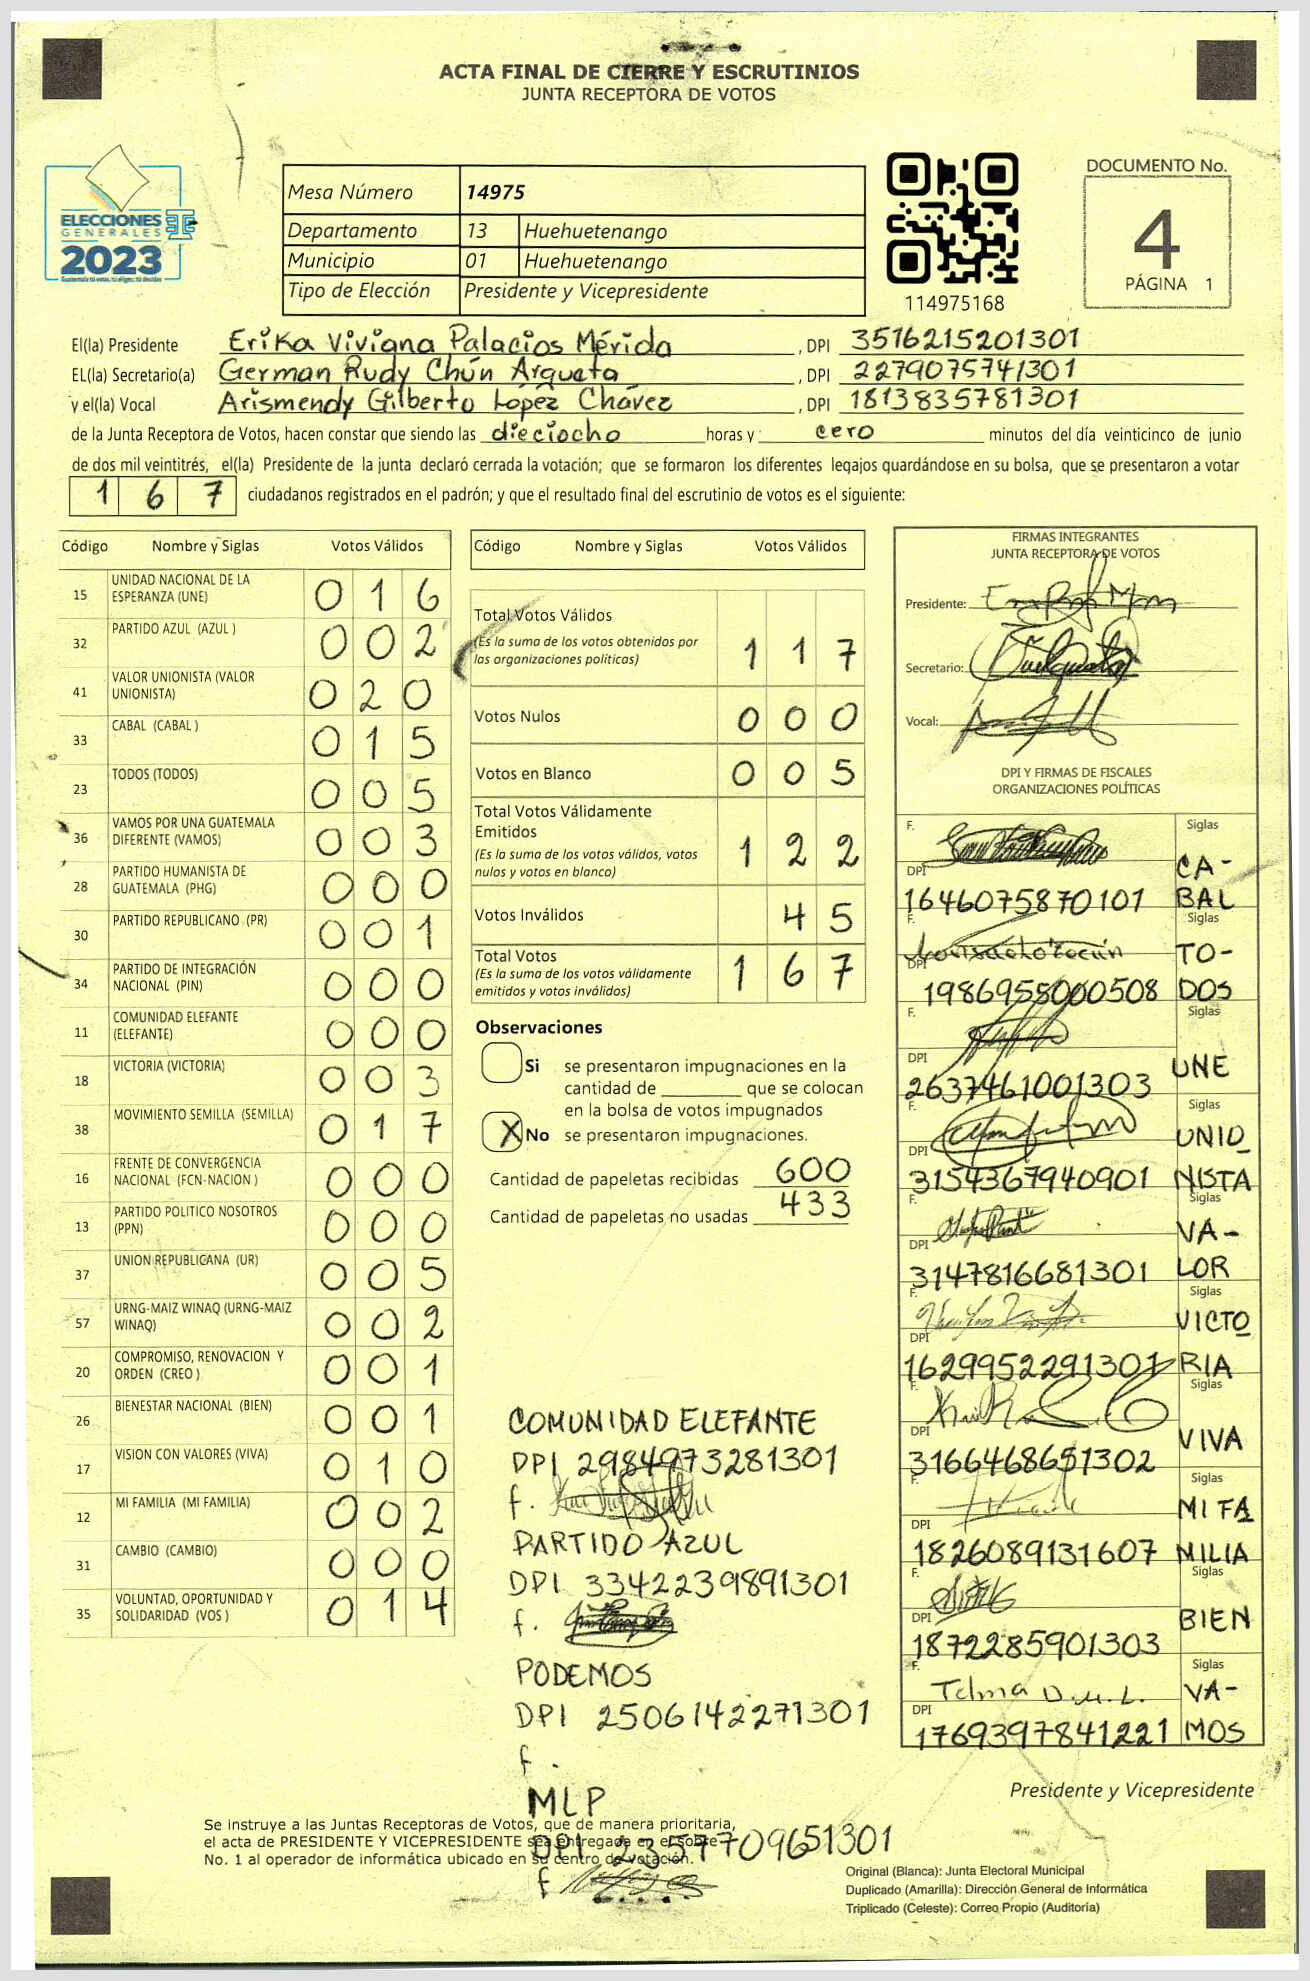 ACTA FINAL DE CIERRE Y ESCRUTINIOS
JUNTA RECEPTORA DE VOTOS
ELECCIONES
GENERALES
2023
Mesa Número 14975
Departamento 13 Huehuetenango
Municipio 01 Huehuetenango
Tipo de Elección Presidente y Vicepresidente
114975168
DOCUMENTO No.
4
PÁGINA 1
El(la) Presidente Erika Viviana Palacios Mérida, DPI 3516215201301
EL(la) Secretario(a) German Rudy Chún Argueta, DPI 2279075741301
y el(la) Vocal Arismendy Gilberto López Chávez, DPI 1813835781301
de la Junta Receptora de Votos, hacen constar que siendo las dieciocho horas y cero minutos del día veinticinco de junio
de dos mil veintitrés, el(la) Presidente de la junta declaró cerrada la votación; que se formaron los diferentes legajos guardándose en su bolsa, que se presentaron a votar
1 6 7 ciudadanos registrados en el padrón; y que el resultado final del escrutinio de votos es el siguiente:
Código Nombre y Siglas Votos Válidos
15 UNIDAD NACIONAL DE LA ESPERANZA (UNE) 0 1 6
32 PARTIDO AZUL (AZUL ) 0 0 2
41 VALOR UNIONISTA (VALOR UNIONISTA) 0 2 0
33 CABAL (CABAL ) 0 1 5
23 TODOS (TODOS) 0 0 5
36 VAMOS POR UNA GUATEMALA DIFERENTE (VAMOS) 0 0 3
28 PARTIDO HUMANISTA DE GUATEMALA (PHG) 0 0 0
30 PARTIDO REPUBLICANO (PR) 0 0 1
34 PARTIDO DE INTEGRACIÓN NACIONAL (PIN) 0 0 0
11 COMUNIDAD ELEFANTE (ELEFANTE) 0 0 0
18 VICTORIA (VICTORIA) 0 0 3
38 MOVIMIENTO SEMILLA (SEMILLA) 0 1 7
16 FRENTE DE CONVERGENCIA NACIONAL (FCN-NACION ) 0 0 0
13 PARTIDO POLITICO NOSOTROS (PPN) 0 0 0
37 UNION REPUBLICANA (UR) 0 0 5
57 URNG-MAIZ WINAQ (URNG-MAIZ WINAQ) 0 0 2
20 COMPROMISO, RENOVACION Y ORDEN (CREO ) 0 0 1
26 BIENESTAR NACIONAL (BIEN) 0 0 1
17 VISION CON VALORES (VIVA) 0 1 0
12 MI FAMILIA (MI FAMILIA) 0 0 2
31 CAMBIO (CAMBIO) 0 0 0
35 VOLUNTAD, OPORTUNIDAD Y SOLIDARIDAD (VOS ) 0 1 4
Código Nombre y Siglas Votos Válidos
Total Votos Válidos
(Es la suma de los votos obtenidos por
las organizaciones políticas) 1 1 7
Votos Nulos 0 0 0
Votos en Blanco 0 0 5
Total Votos Válidamente
Emitidos
(Es la suma de los votos válidos, votos
nulos y votos en blanco) 1 2 2
Votos Inválidos 4 5
Total Votos
(Es la suma de los votos válidamente
emitidos y votos inválidos) 1 6 7
Observaciones
Si se presentaron impugnaciones en la
cantidad de ________ que se colocan
en la bolsa de votos impugnados
X No se presentaron impugnaciones.
Cantidad de papeletas recibidas 600
Cantidad de papeletas no usadas 433
COMUNIDAD ELEFANTE
DPI 2984973281301
f.
PARTIDO AZUL
DPI 3342239891301
f.
PODEMOS
DPI 2506142271301
f.
MLP
DPI 2357709651301
f
FIRMAS INTEGRANTES
JUNTA RECEPTORA DE VOTOS
Presidente:
Secretario:
Vocal:
DPI Y FIRMAS DE FISCALES
ORGANIZACIONES POLÍTICAS
F. Siglas
DPI 1646075870101 CA-BAL
F. Siglas
DPI 1986955000508 TO-DOS
F. Siglas
DPI 2637461001303 UNE
F. Siglas
DPI 3154367940901 UNIONISTA
F. Siglas
DPI 3147816681301 VA-LOR
F. Siglas
DPI 1629952291301 VICTORIA
F. Siglas
DPI 3166468651302 VIVA
F. Siglas
DPI 1826089131607 MI FAMILIA
F. Siglas
DPI 1872285901303 BIEN
F. Telma D.M.L. Siglas
DPI 1769397841221 VA-MOS
Presidente y Vicepresidente
Se instruye a las Juntas Receptoras de Votos, que de manera prioritaria,
el acta de PRESIDENTE Y VICEPRESIDENTE sea entregada en el sobre
No. 1 al operador de informática ubicado en su centro de votación.
Original (Blanca): Junta Electoral Municipal
Duplicado (Amarilla): Dirección General de Informática
Triplicado (Celeste): Correo Propio (Auditoría)